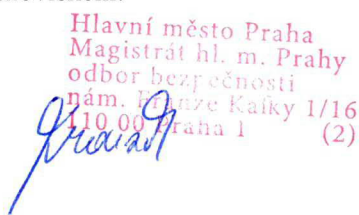 Hlavní město Praha
Magistrát hl. m. Prahy
odbor bezpečnosti
nám. Franze Kafky 1/16
110 00 Praha 1 (2)